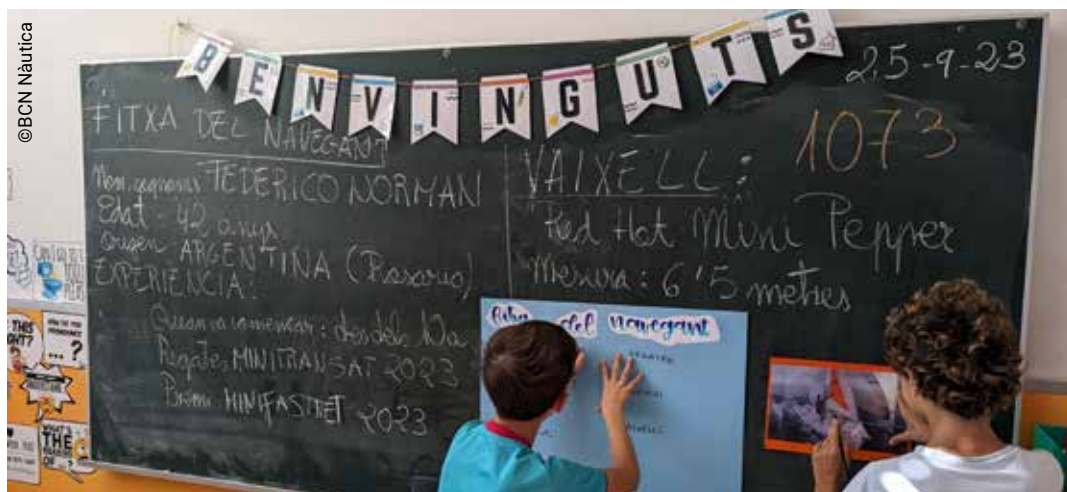 ©BCN Nàutica
BENVINGUTS
25-9-23
FITXA DEL NAVEGANT
FEDERICO NORMAN
Edat: 42 anys
Origen ARGENTINA (Rosario)
EXPERIÈNCIA:
començar: des dels 10a
Regates MINITRANSAT 2023
MINIFASTNET 2023
VAIXELL: 1073
Red Hot Mini Pepper
Mesura: 6'5 metres
del navegant
THIS
...?
WHAT'S
THE
OF